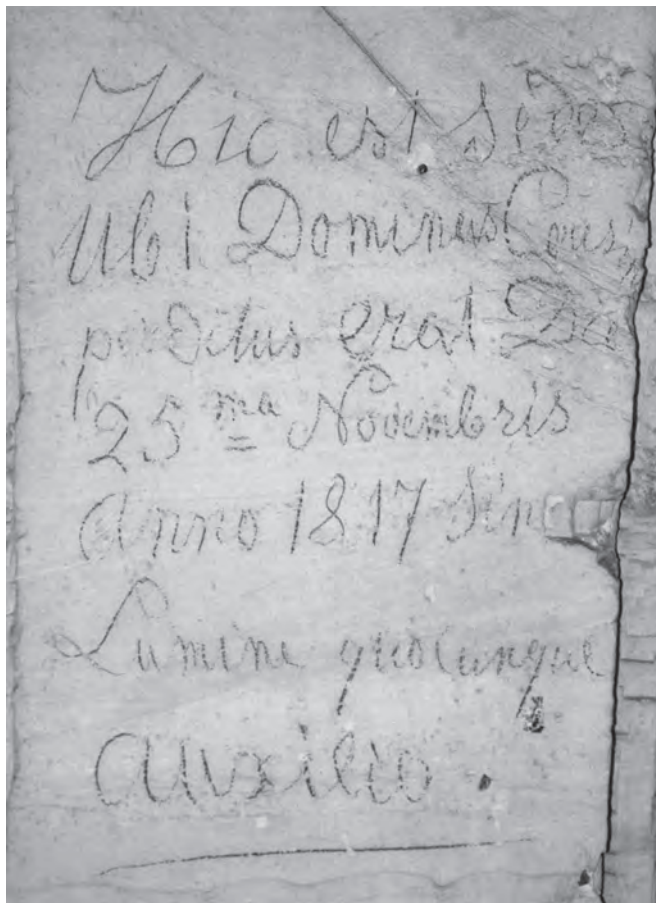 Hic est Sedes
Ubi Dominus Cous
perditus erat Die
25 ma Novembris
Anno 1817 Sine
Lumine quocunque
auxilio.